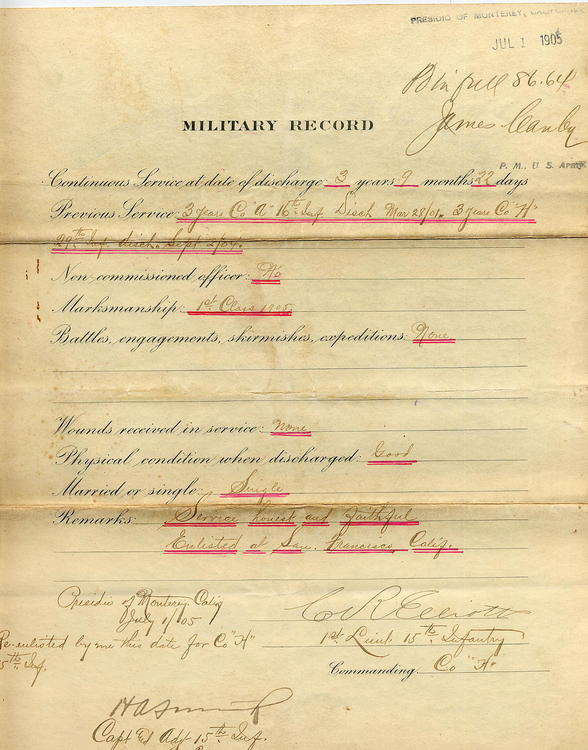 PRESIDIO OF MONTEREY, CALIFORNIA
JUL 1 1905
Pd in full 86.64
James Canby
P. M., U. S. Army
MILITARY RECORD
Continuous Service at date of discharge: 3 years 9 months 22 days
Previous Service: 3 years Co "A" 16th Inf Disch Mar 28/01. 3 years Co "H"
29th Inf. disch. Sept 2/04.
Non commissioned officer: No
Marksmanship: 1st Class 1905
Battles, engagements, skirmishes, expeditions: None
Wounds received in service: None
Physical condition when discharged: Good
Married or single: Single
Remarks: Service honest and faithful
Enlisted at San. Francisco Calif.
Presidio of Monterey Calif
July 1/05
Re-enlisted by me this date for Co "H"
5th Inf.
C R Elliott
1st Lieut 15th Infantry
Commanding Co "H"
Capt Adjt 15th Inf.